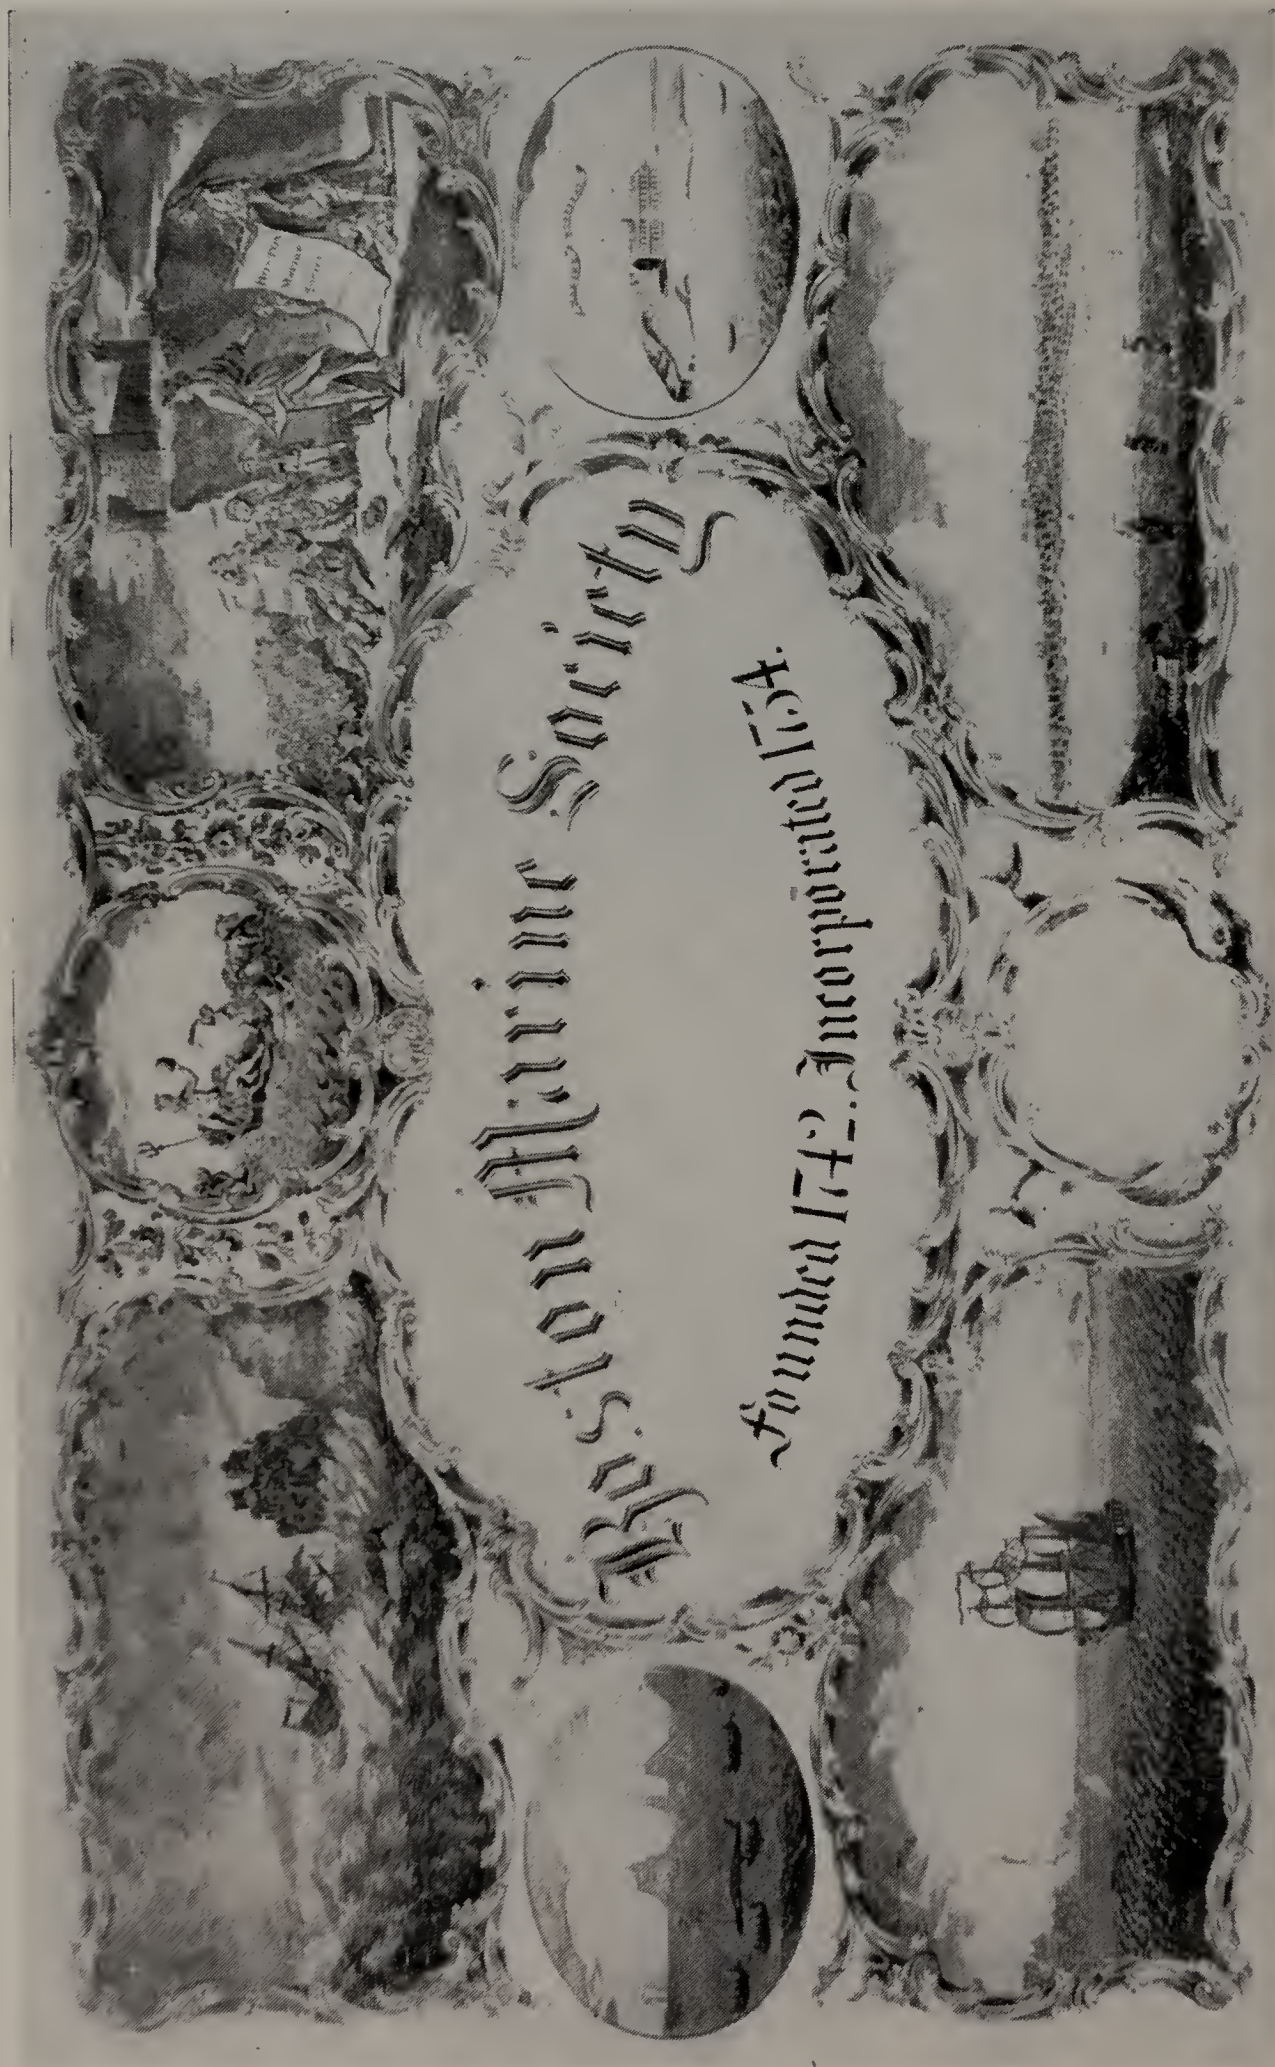 Boston Marine Society
Founded 1742. Incorporated 1754.